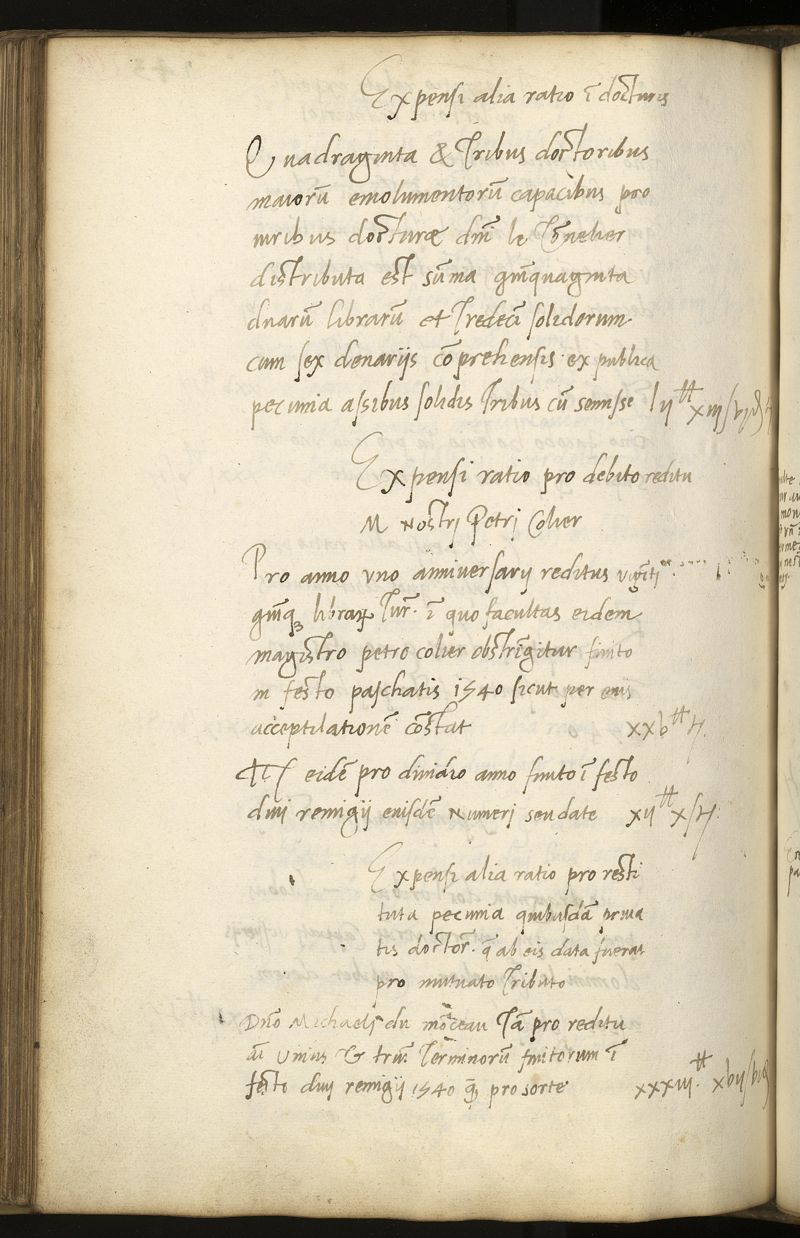 Expensi alia ratio ī docturis
Quadraginta & Tribus doctoribus
maiorū emolumentorū capacibus pro
iuribus docturæ dm̄i le Tōnelier
distributa est sūma qīnquaginta
duarū librarū et Tredecī solidorum
cum sex denarijs cōprehensis ex publica
pecunia assibus solidis Tribus cū semisse lij ₶ xiij s vj d
Expensi ratio pro debito reditu
M Nostrj Petrj Colier
Pro anno vno anniversarij reditus
qīnq librar Tur. ī quo facultas eidem
magistro petro colier obstrīgitur finito
in festo paschatis 1540 sicut per eius
acceptilationē cōstat xxv ₶ t.
eidē pro dimidio anno finito ī festo
diui remigij eiusdē Numerj seu date xij ₶ x s t.
Expensi alia ratio pro resti
tuta pecunia quibusdā priua
tis doctor. q̄ ab eis data fuerat
pro mutuato Tributo
Dn̄o Michaeli du mōceau Tā pro reditu
āi Unius & triū Terminorū finitorum ī
festo diuj remigij 1540 q̄ pro sorte xxxiij ₶ xvij s